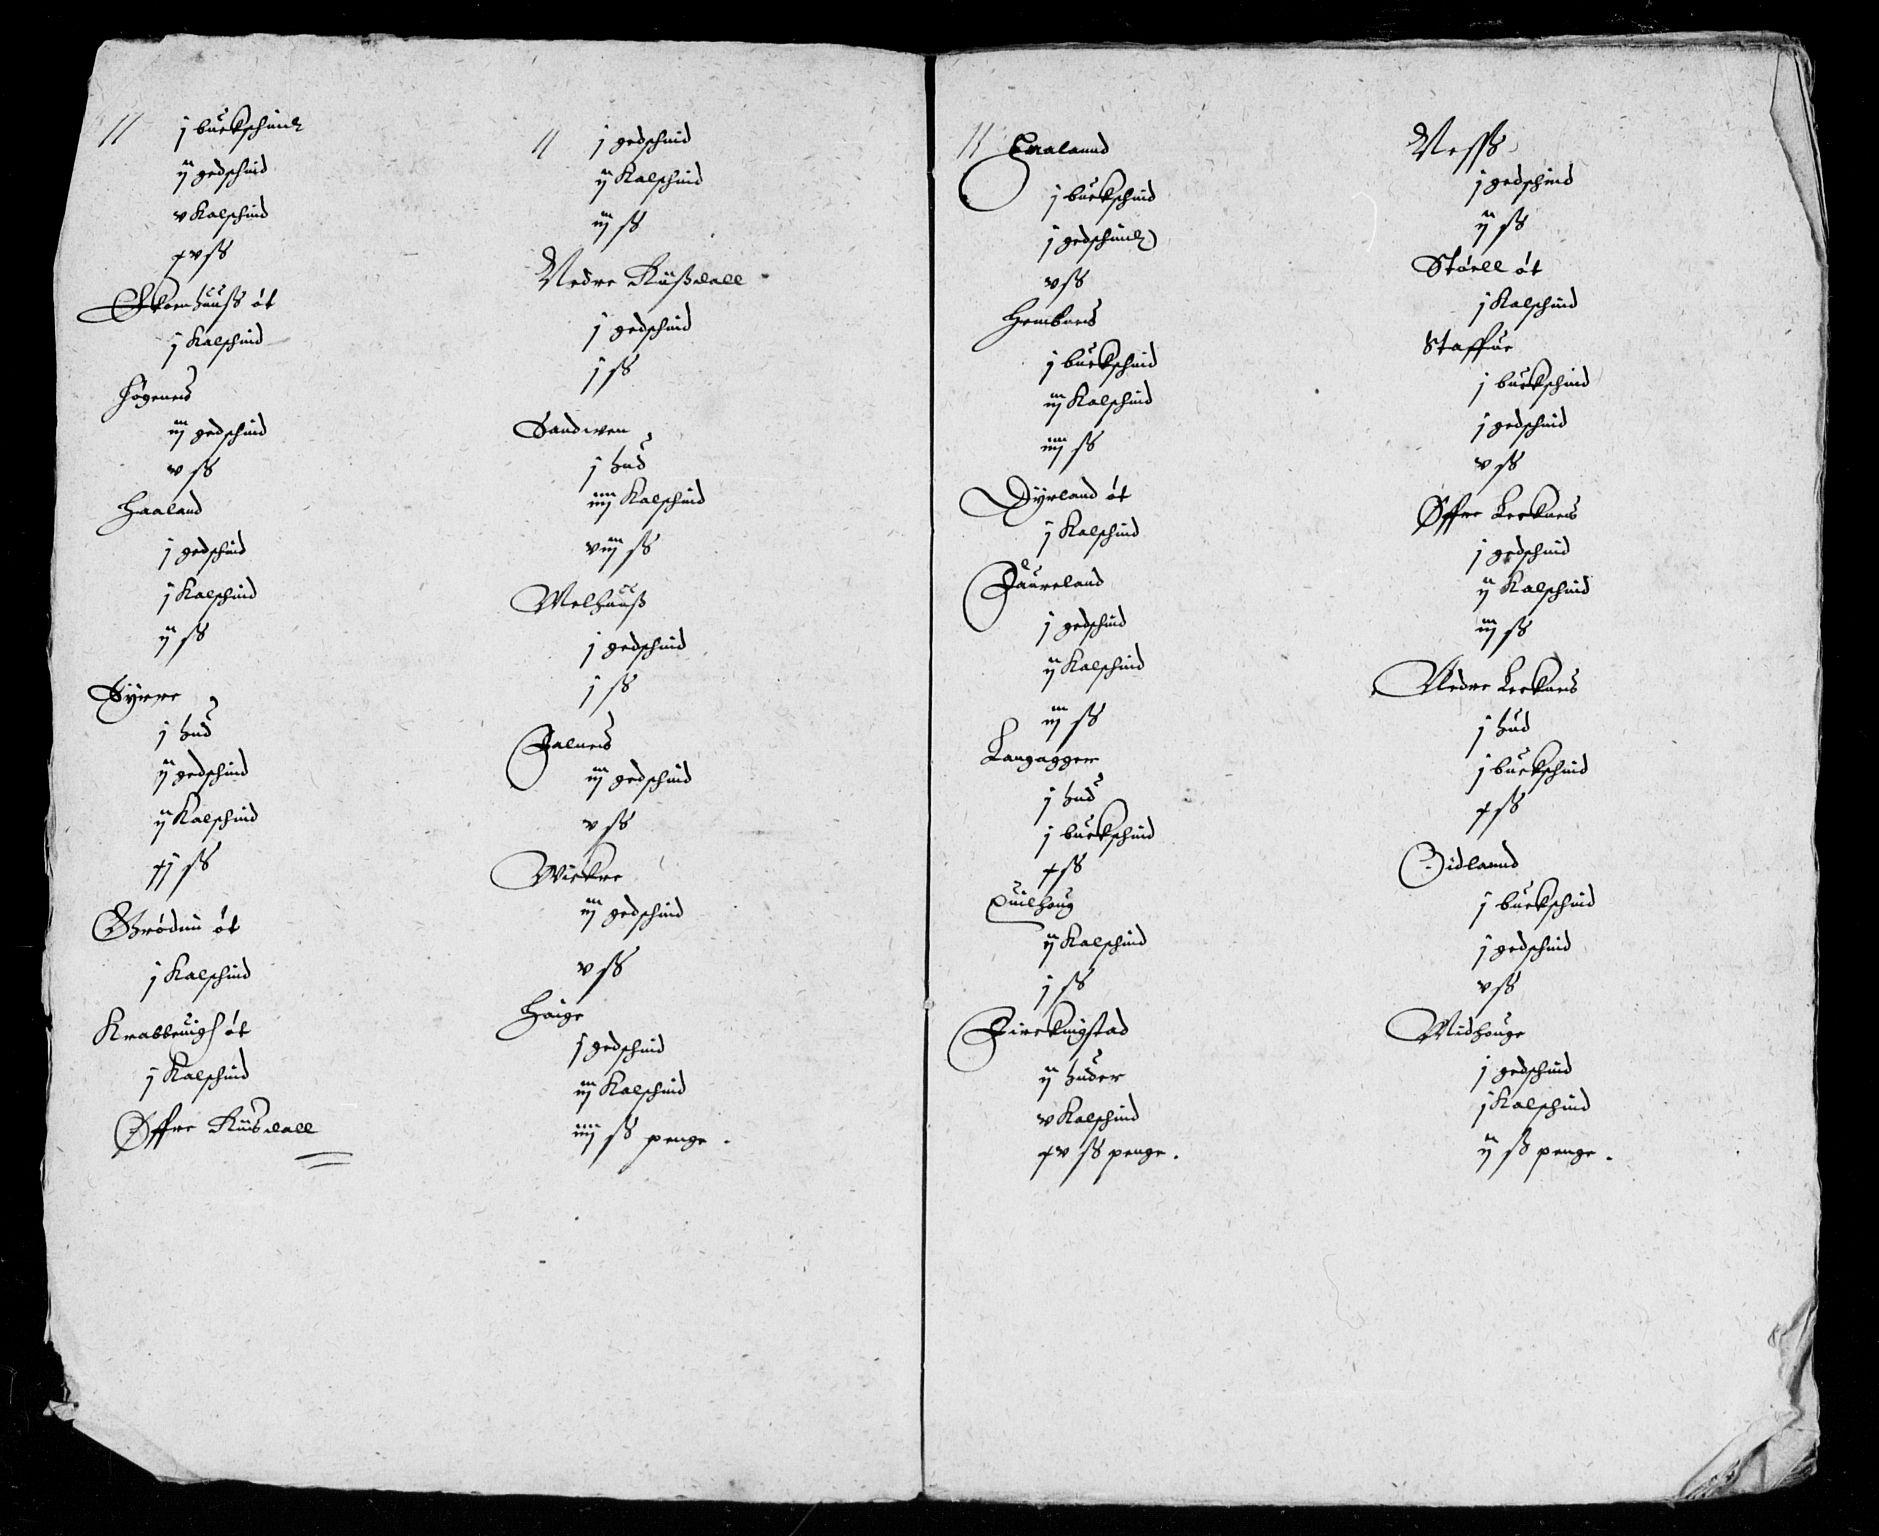 j buckschind
ij gedschind
v Kalschind
xv ss
Skoenhuuss øt
j Kalschind
Høgenes
iij gedschind
v ss
Haaland
j gedschind
j Kalschind
ij ss
Tyrre
j hud
ij gedschind
ij Kalschind
xj ss
Brøduii øt
j Kalschind
Krabbeuigh øt
j Kalschind
Øffre Kuusdall
j gedschind
ij Kalschind
iij ss
Nedre Kuussdall
j gedschind
j ss
Sandwen
j hud
iiij Kalschind
viij ss
Melhuuss
j gedschind
j ss
Falnes
iij gedschind
v ss
Wickre
iij gedschind
v ss
Høige
j gedschind
iij Kalschind
iiij ss penge .
j buckschind
j gedschind
v ss
Hembnes
j buckschind
iij Kalschind
iiij ss
Dyrland øt
j Kalschind
Faureland
j gedschind
ij Kalschind
iij ss
Langagger
j hud
j buckschind
x ss
Quilhoug
ij Kalschind
j ss
Firekingstad
ij huder
v Kalschind
xv ss penge .
Ness
j gedschind
ij ss
Støell øt
j Kalschind
Staffue
j buckschind
j gedschind
v ss
Øffre Leeknes
j gedschind
ij Kalschind
iij ss
Nedre Leeknes
j hud
j buckschind
x ss
Gidlannd
j buckschind
j gedschind
v ss
Midhouge
j gedschind
j Kalschind
ij ss penge .